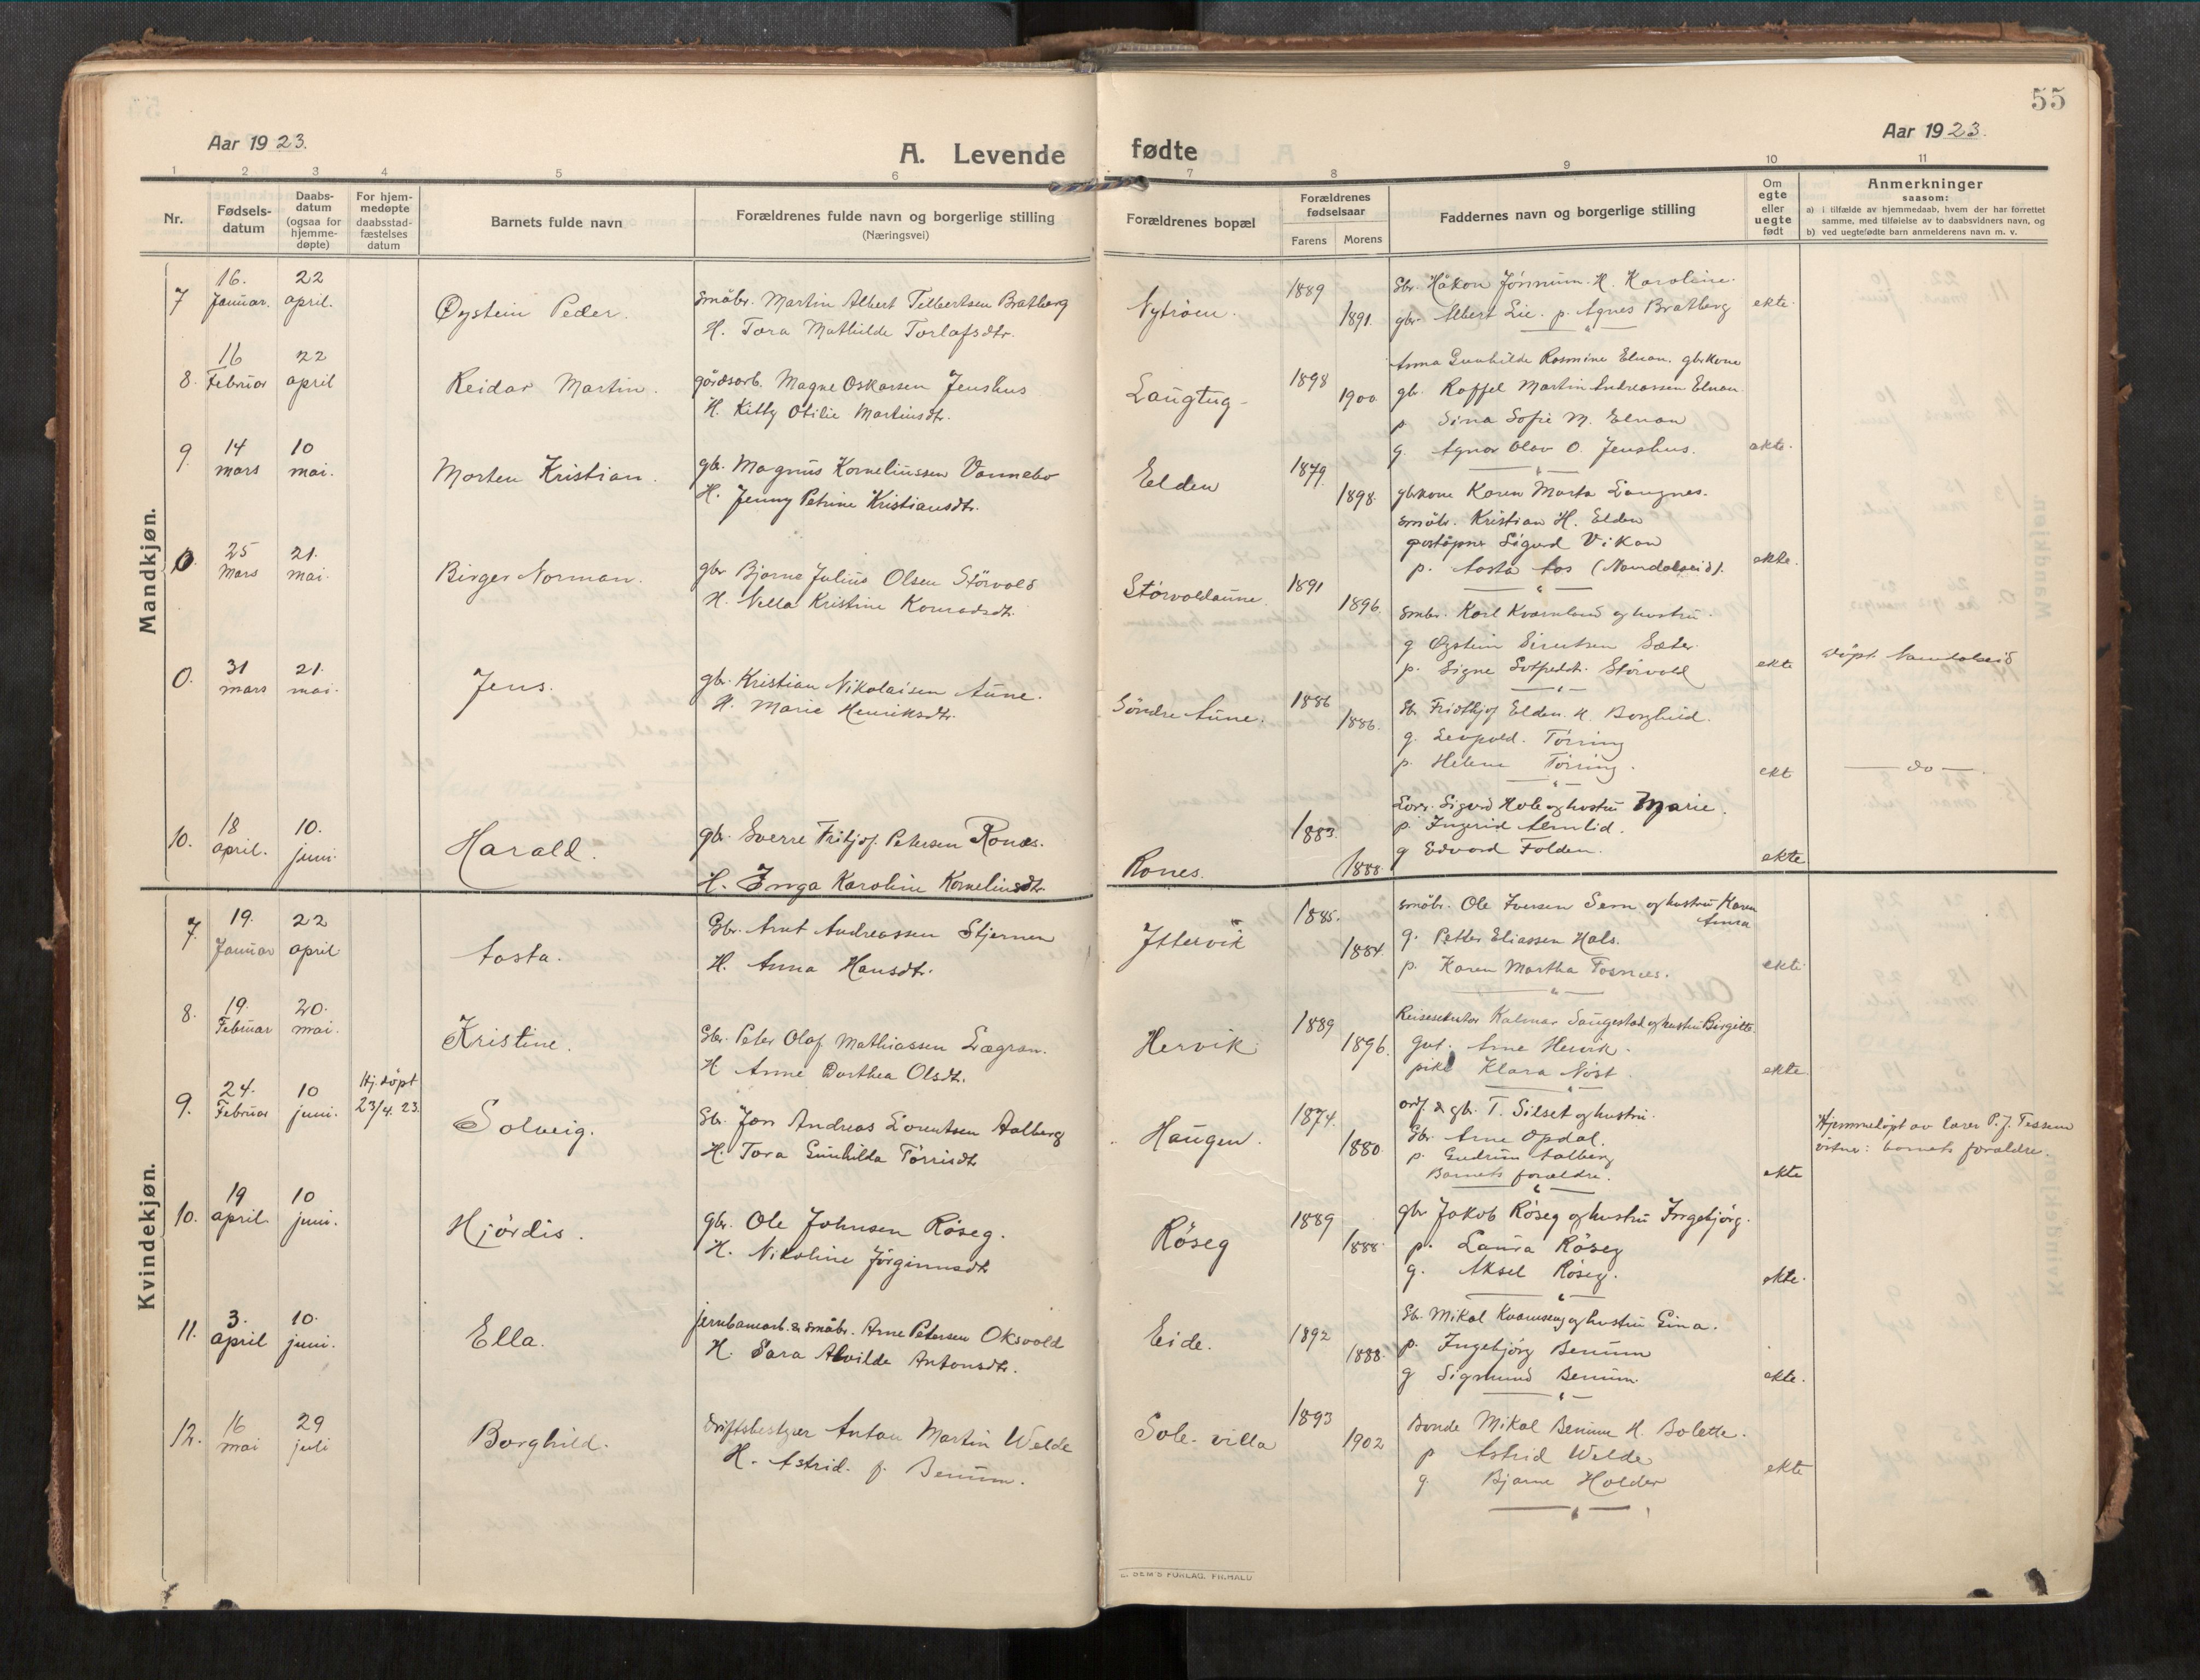 55
Aar 1923.
A. Levende fødte
Aar 1923.
1 2 3 4 5 6 7 8 9 10 11
Nr.
Fødsels-
datum
Daabs-
datum
(ogsaa for
hjemme-
døpte)
For hjem-
medøpte
daabsstad-
fæstelses
datum
Barnets fulde navn
Forældrenes fulde navn og borgerlige stilling
(Næringsvei)
Forældrenes bopæl
Forældrenes
fødselsaar
Farens Morens
Faddernes navn og borgerlige stilling
Om
egte
eller
uegte
født
Anmerkninger
saasom:
a) i tilfælde av hjemmedaab, hvem der har forrettet
samme, med tilføielse av to daabsvidners navn, og
b) ved uegtefødte barn anmelderens navn m. v.
Mandkjøn.
7 16. Januar. 22 april. Øystein Peder.
småbr. Martin Albert Telbertsen Bratberg
H. Tora Mathilde Torlafsdtr.
Nytrøen. 1889 1891.
Gbr. Håkon Jørnum. H. Karoline.
gbr. Albert Lie. p. Agnes Bratberg ekte.
8. 16 Februar 22 april Reidar Martin.
gårdsarb. Magne Oskarsen Jenshus
H. Kitty Otilie Martinsdtr.
Langtug 1898 1900
Anna Gunhilde Rosmine Elnan. gbrkone
gb. Roffel Martin Andreassen Elnan
p. Sina Sofie M. Elnan
g. Agnar Olav O. Jenshus. ekte.
9. 14 mars 10 mai. Morten Kristian.
gb. Magnus Korneliussen Vannebo
H. Jenny Petrine Kristiansdtr.
Elden 1879 1898.
gbrkone Karen Marta Langnes.
småbr. Kristian H. Elden
poståpner Sigurd Vikan
p. Aasta Aas (Namdalseid). ekte.
0. 25 Mars 21. mai. Birger Norman.
gbr Bjarne Julius Olsen Störvold
H. Nella Kristine Konradsdtr.
Størvoldaune. 1891 1896.
småbr. Karl Kvarnland og hustru.
g Øystein Sivertsen Sæter
p. Signe Sotfreddtr. Størvold ekte
døpt. Namdalseid
0. 31 mars 21. mai. Jens.
gbr. Kristian Nikolaisen Aune.
H. Marie Henriksdtr.
Söndre Aune. 1886 1886.
Gbr. Fridthjof Elden. H. Borghild.
g. Leopold. Tørring
p. Helene Tørring. ekt
do
10. 18 april. 10. juni. Harald.
gbr. Sverre Fritjof. Petersen Ronæs.
H. Inga Karoline Korneliusdtr.
Rones. 1883. 1888
Sigurd Hole og hustru Marie.
p. Ingerid Almlid.
g Edvard Folden. ekte
Kvindekjøn.
7. 19. Januar 22 april Aasta.
Gbr. Arnt Andreassen Stjernen
H. Anna Hansdtr.
Yttervik 1885. 1884.
småbr. Ole Iversen Sem og hustru Karen
Anna
g. Petter Eliassen Hals.
p. Karen Martha Fosnæs. ekte
8. 19. Februar 20. mai. Kristine.
Gbr. Peter Olaf Mathiassen Lægran.
H Anne Dorthea Olsdtr.
Hervik 1889 1896.
Reisesekretær Kalmar Saugestad og hustru Bergitte
gut. Arne Hervik.
pike Klara Nøst. ekte.
9. 24. Februar 10 juni. Hj. døpt
23/4. 23. Solveig.
Gbr. Jon Andreas Lorentsen Aalberg
H. Tora Gunhilda Törrisdtr
Haugen. 1874. 1880
ordf. & gbr. T. Silset og hustru.
Gbr. Arne Opdal.
p. Gudrun Aalberg
Barnets forældre. ekte
Hjemmedøpt av lærer P. J. Tessem
vitner: barnets forældre.
10. 19 april. 10 juni. Hjørdis.
gbr. Ole Johnsen Røseg.
H. Nikoline Jørginusdtr
Røseg 1889 1888.
gbr Jakob Røseg og hustru Ingebjørg.
p. Laura Røseg
g. Aksel Røseg. ekte.
11. 3. april 10. juni. Ella.
jernbanearb. & småbr. Arne Petersen Oksvold
H. Sara Alvilde Antonsdtr.
Eide. 1892 1888.
Gbr. Mikal Kvamseng og hustru Gina.
p. Ingebjørg Benum
g Sigmund Benum. ekte.
12. 16 mai 29 juli Borghild.
Driftsbestyrer Anton Martin Welde
H. Astrid. f. Benum.
Sole-villa 1893 1902
Bonde Mikal Benum H. Bolette.
p Astrid Welde
g. Bjarne Holder ekte